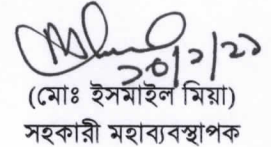 ২০/১/২১
(মোঃ ইসমাইল মিয়া)
সহকারী মহাব্যবস্থাপক